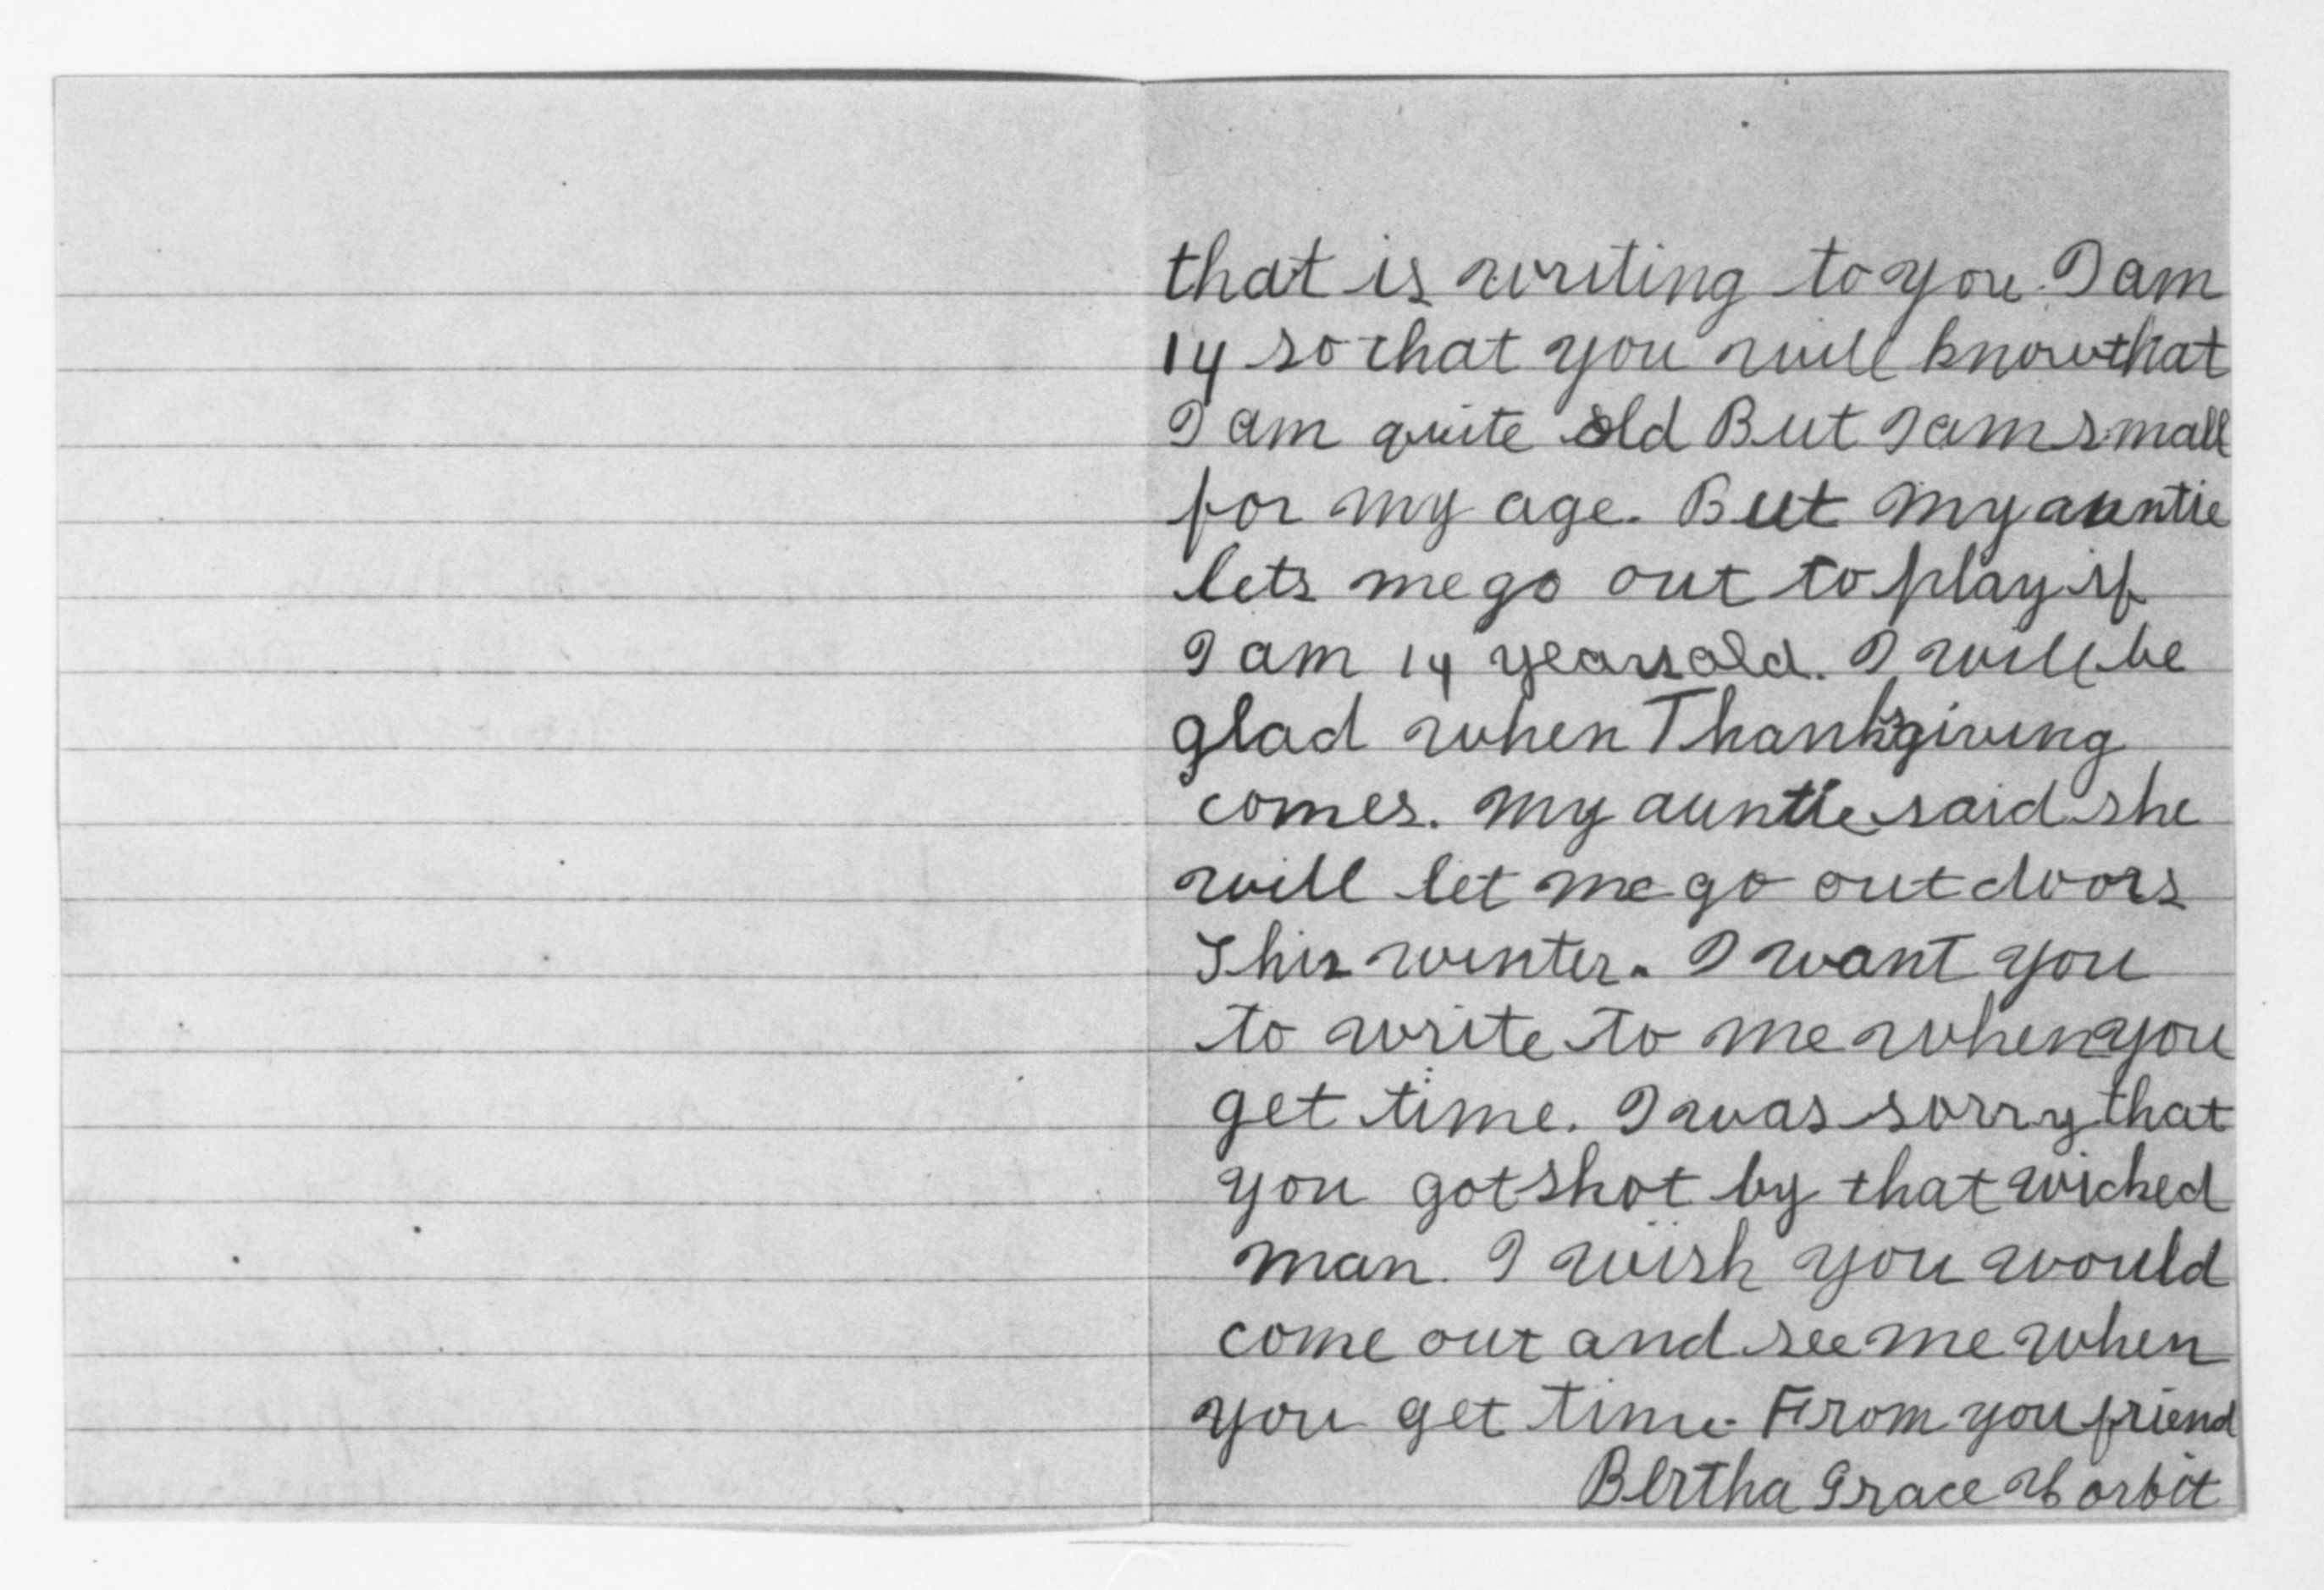 that is writing to you. I am
14 so that you will know that
I am quite old But I am small
for my age. But my auntie
lets me go out to play if
I am 14 years old. I will be
glad when Thanksgiving
comes. My auntie said she
will let me go out doors
This winter. I want you
to write to me when you
get time. I was sorry that
you got shot by that wicked
man. I wish you would
come out and see me when
you get time. From you friend
Bertha Grace